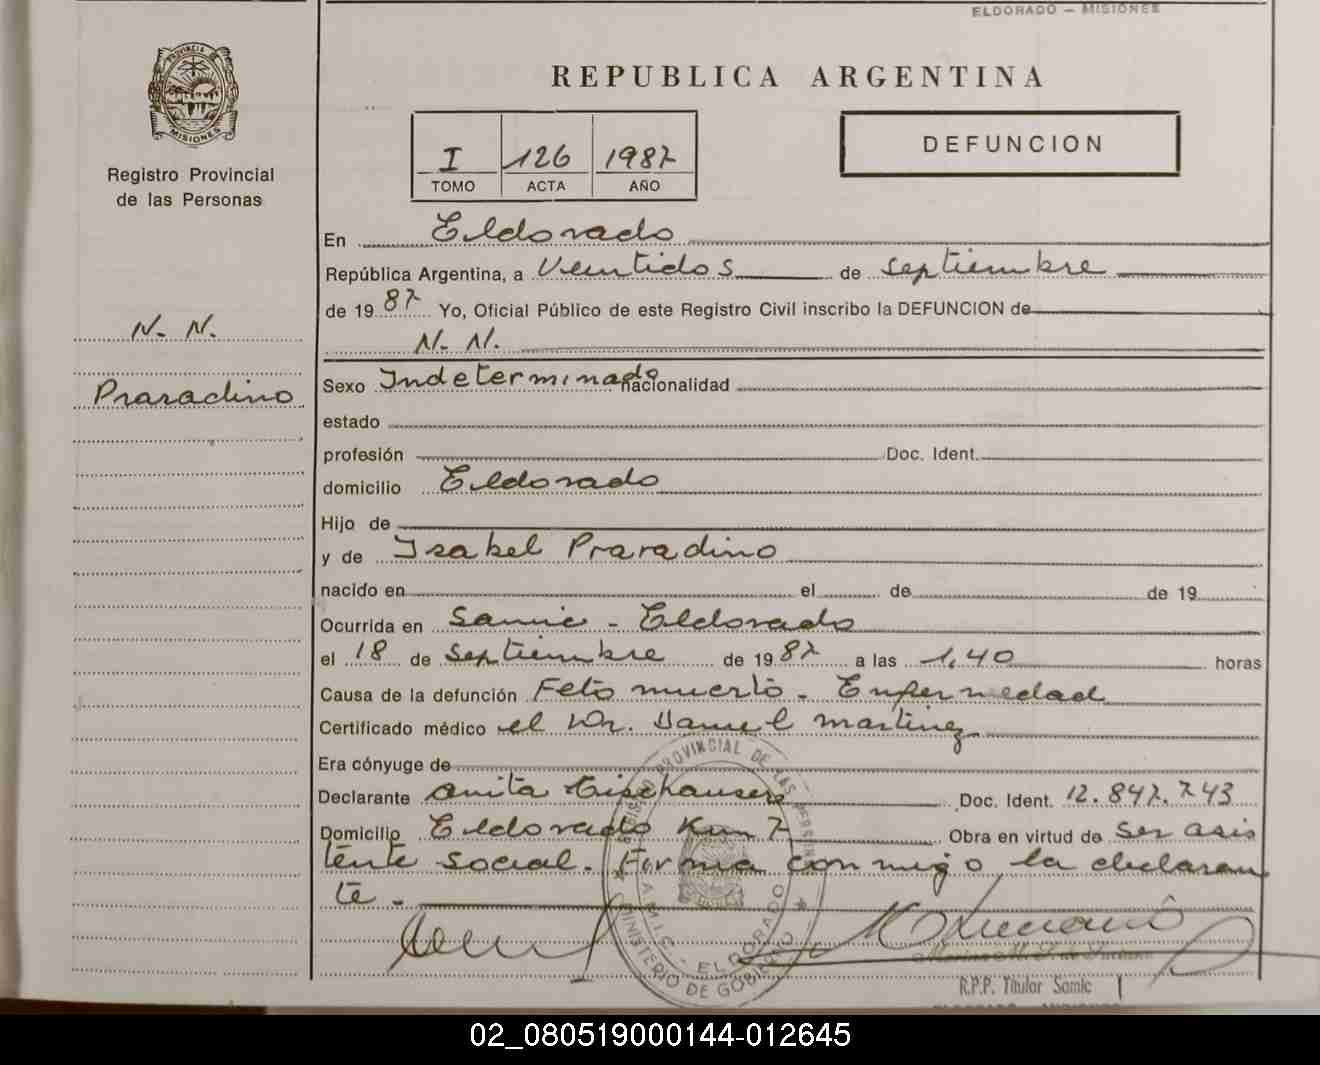 ELDORADO — MISIONES
PROVINCIA DE
MISIONES
Registro Provincial
de las Personas
N. N.
Praradino
REPUBLICA ARGENTINA
I 126 1987
TOMO ACTA AÑO
DEFUNCION
En Eldorado
República Argentina, a Veintidos de septiembre
de 19 87 Yo, Oficial Público de este Registro Civil inscribo la DEFUNCION de
N. N.
Sexo Indeterminado nacionalidad
estado
profesión Doc. Ident.
domicilio Eldorado
Hijo de
y de Isabel Praradino
nacido en el de de 19
Ocurrida en Samic - Eldorado
el 18 de septiembre de 19 87 a las 1,40 horas
Causa de la defunción Feto muerto - Enfermedad
Certificado médico el Dr. Daniel Martinez
Era cónyuge de
Declarante Anita Doc. Ident. 12.847.743
Domicilio Eldorado Km 7 Obra en virtud de ser asis
tente social. Firma conmigo la declaran
te.
REGISTRO PROVINCIAL DE LAS PERSONAS
MINISTERIO DE GOBIERNO
SAMIC - ELDORADO
R.P.P. Titular Samic
ELDORADO - MISIONES
02_080519000144-012645